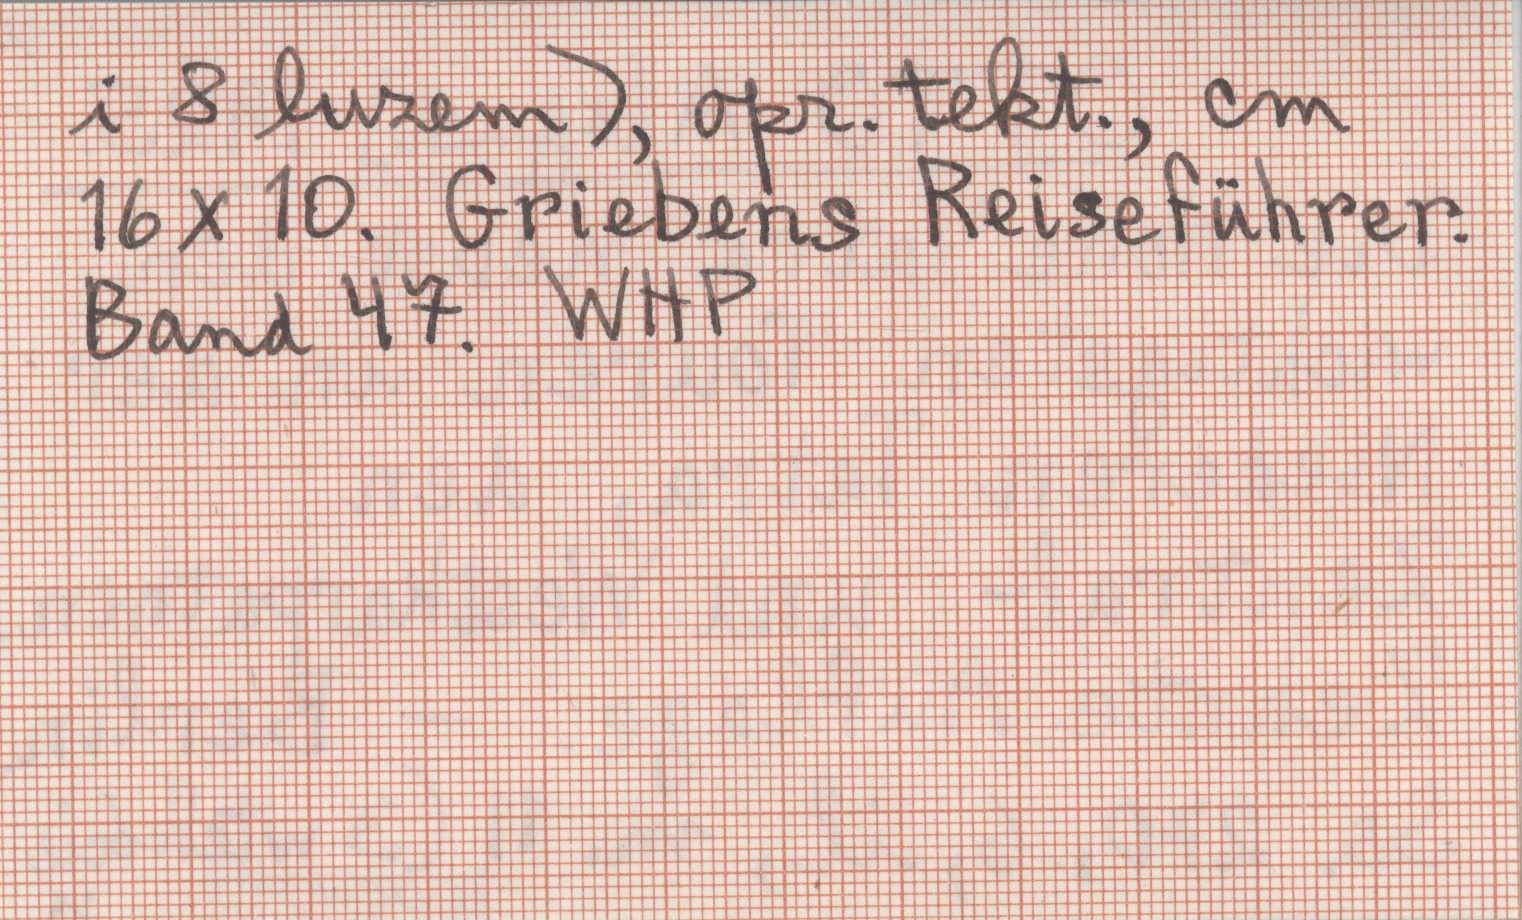 i 8 luzem), opr. tekt., cm
16 x 10. Griebens Reiseführer.
Band 47. WHP